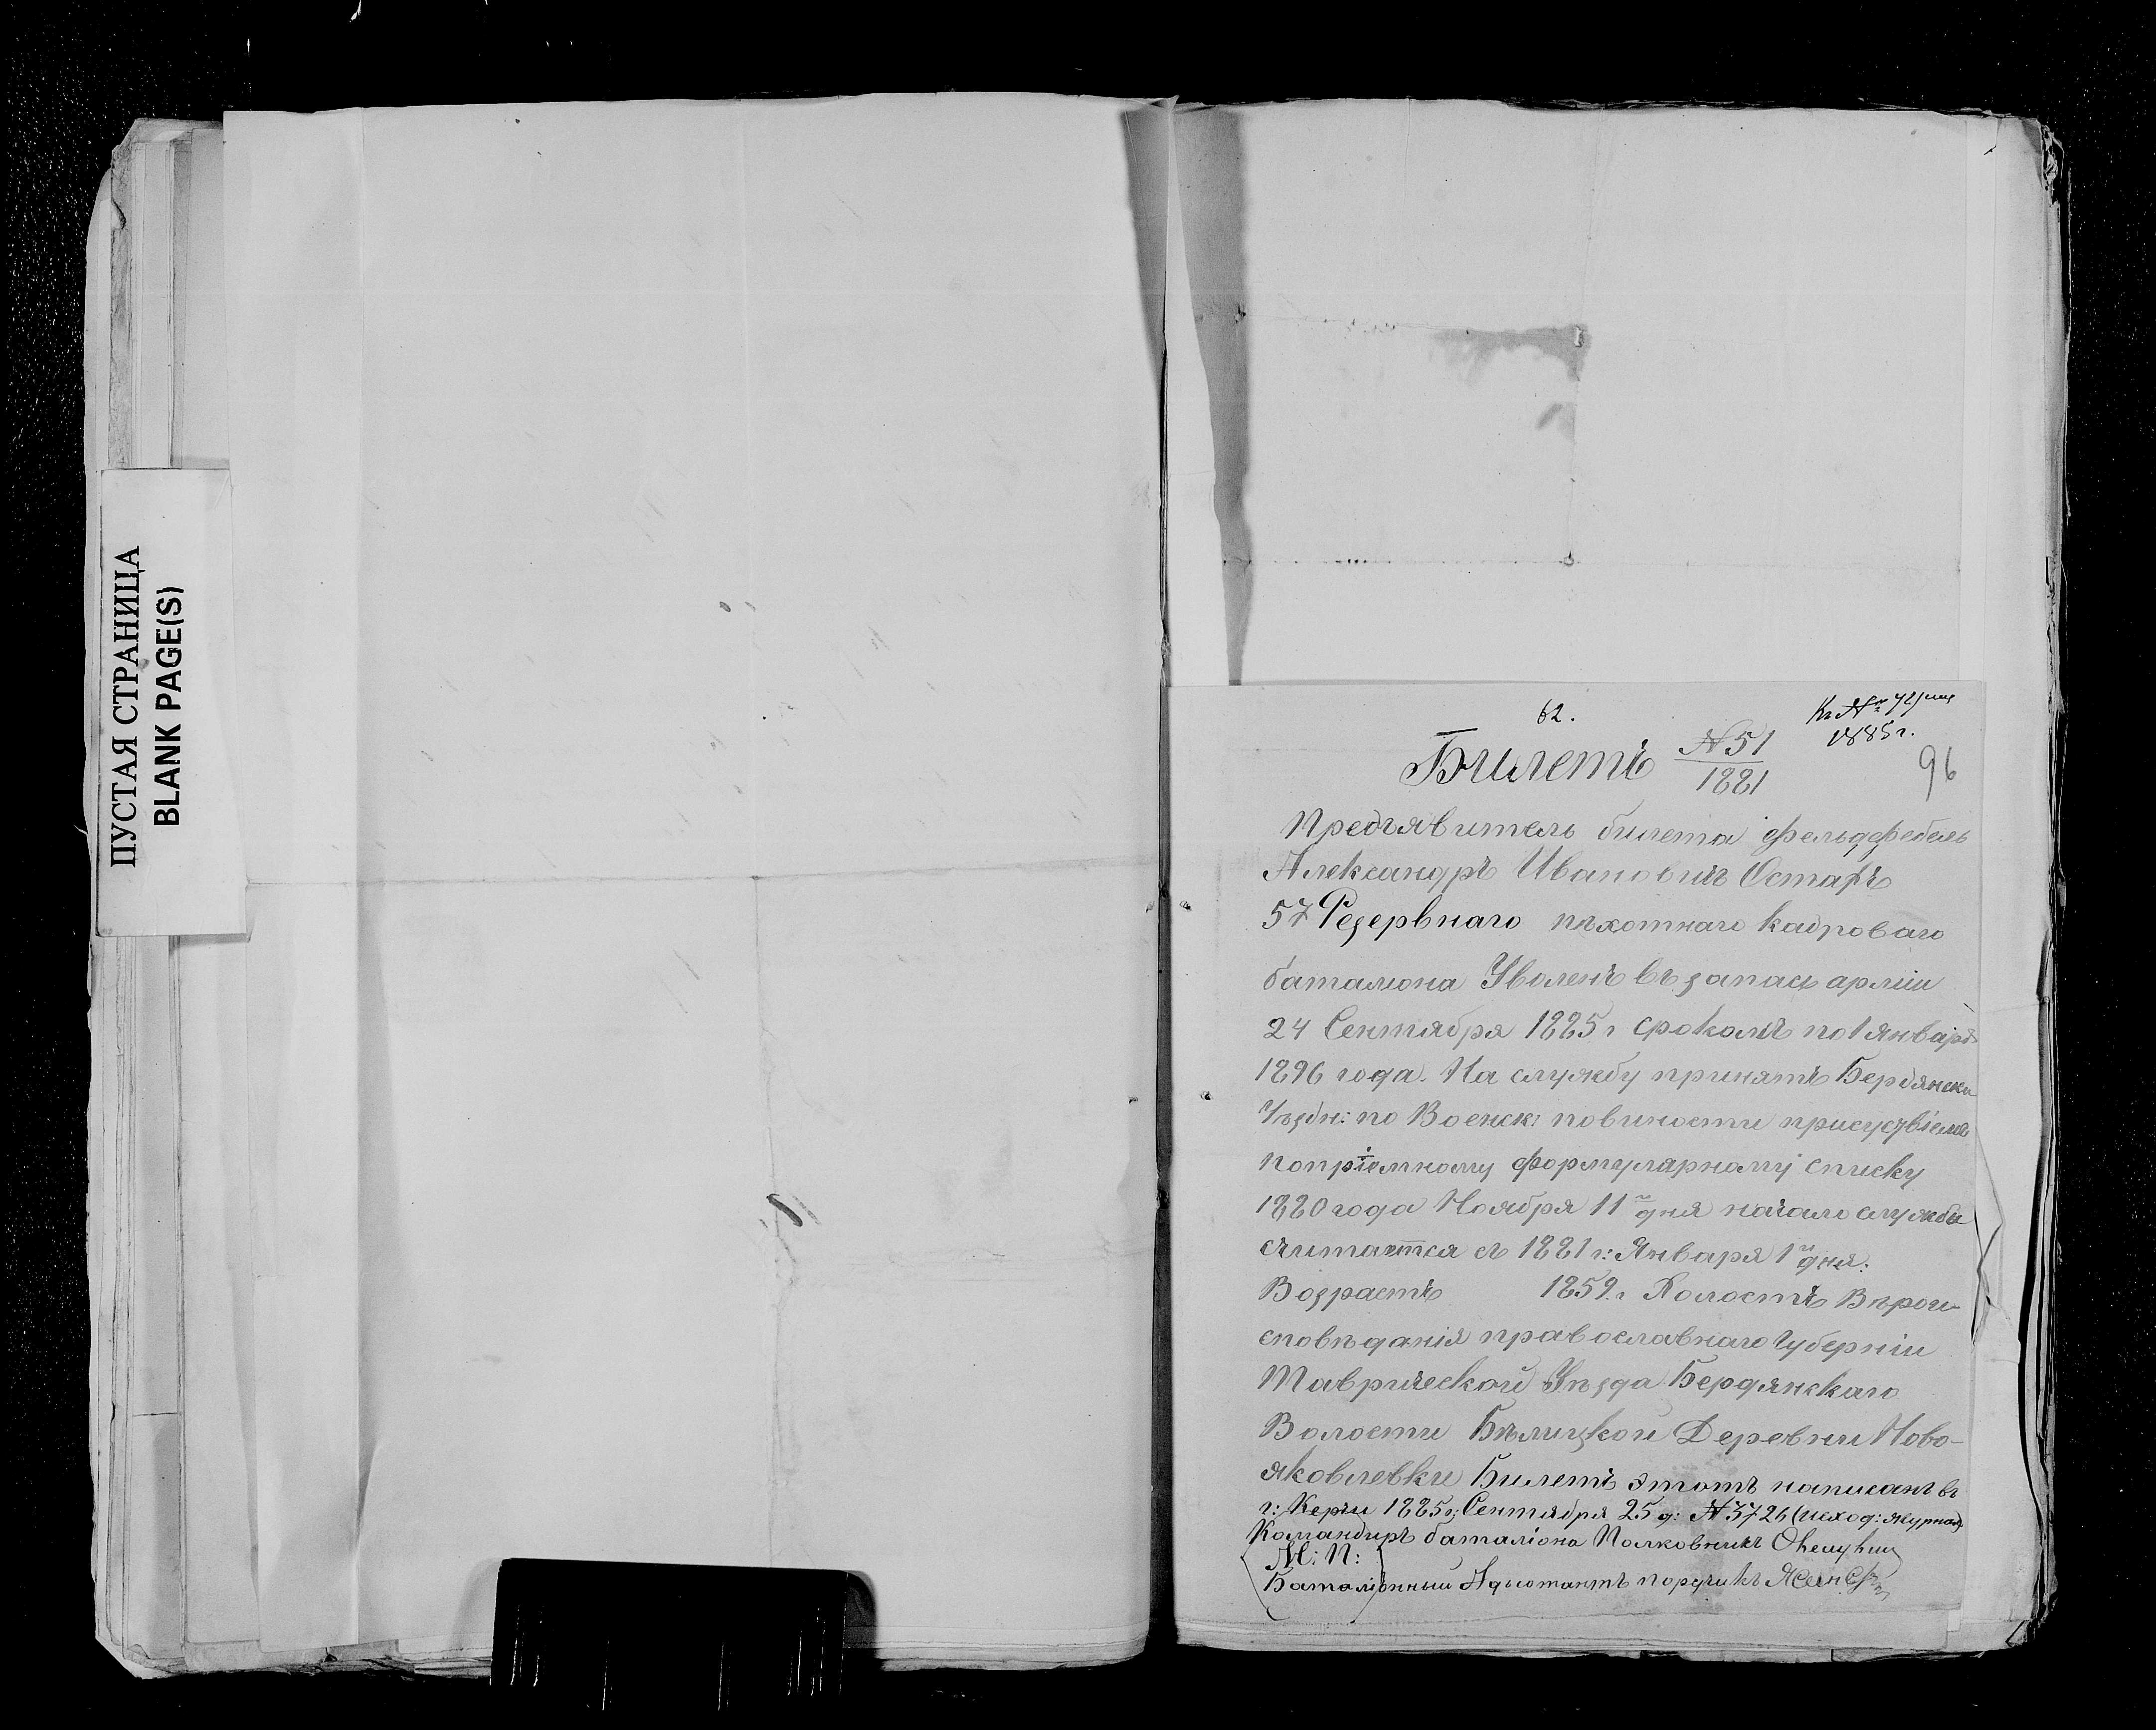 ПУСТАЯ СТРАНИЦА
BLANK PAGE(S)
62.
1885 г.
Билетъ №51
1881
96
Предъявитель билета фельдфебель
Александръ Ивановичъ Остафъ
57 Резервнаго пѣхотнаго кадроваго
баталиона Уволенъ въ запасъ арміи
24 Сентября 1885 г срокомъ по 1 января
1896 года. На службу принятъ Бердянски
Уѣздн: по Военск: повиности присуствіемъ
по пріемному формулярному списку
1880 года Ноября 11 го дня начало службы
считается съ 1881 г: Января 1 го дня:
Возрастъ 1859 г Холостъ Вѣрои-
сповѣданія православнаго Губерніи
Таврической Уѣзда Бердянскаго
Волости Бѣлицкой Деревни Ново-
яковлевки Билетъ этотъ написанъ въ
г: Керчи 1885 г: Сентября 25 д: №3726 (исход: журнал)
Командиръ баталіона Полковникъ
М: П:
Баталіонный Адъютантъ поручикъ